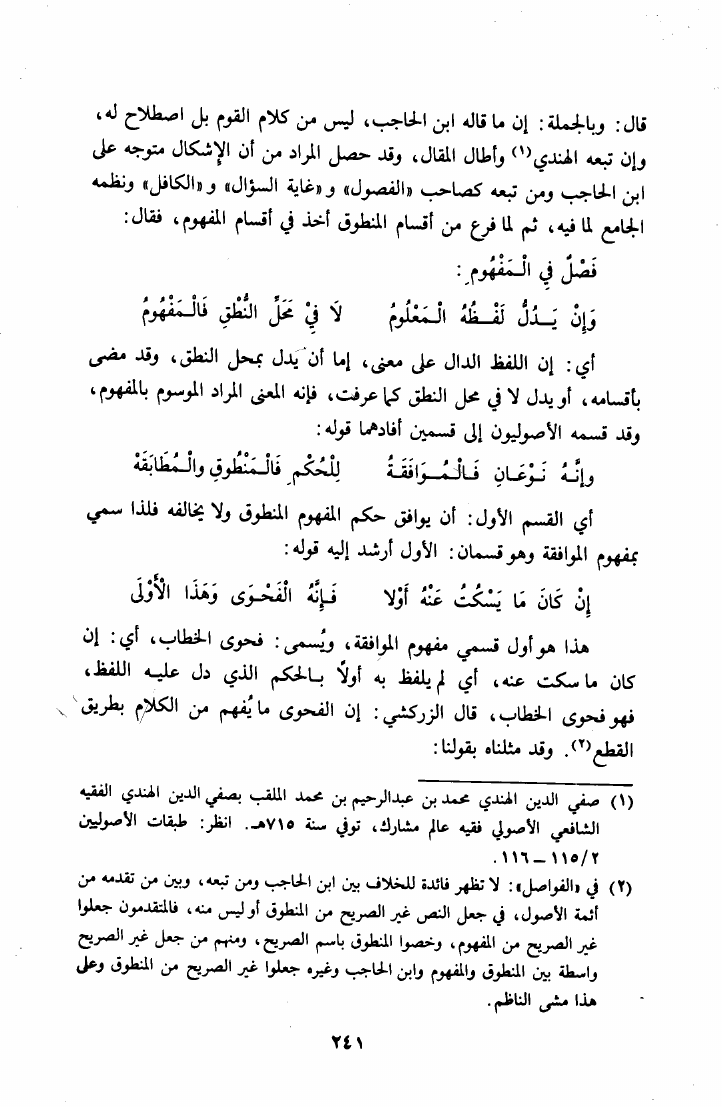 قال: وبالجملة: إن ما قاله ابن الحاجب، ليس من كلام القوم بل اصطلاح له،
وإن تبعه الهندي(١) وأطال المقال، وقد حصل المراد من أن الإشكال متوجه على
ابن الحاجب ومن تبعه كصاحب «الفصول» و«غاية السؤال» و«الكافل» ونظمه
الجامع لما فيه، ثم لما فرع من أقسام المنطوق أخذ في أقسام المفهوم، فقال:
فَصْلٌ فِي الْـمَفْهُومِ:
وَإِنْ يَـدُلُّ لَفْـظُهُ الْـمَعْلُومُ لَا فِيْ مَحَلِّ النُّطْقِ فَالْـمَفْهُومُ
أي: إن اللفظ الدال على معنى، إما أن يدل بمحل النطق، وقد مضى
بأقسامه، أو يدل لا في محل النطق كما عرفت، فإنه المعنى المراد الموسوم بالمفهوم،
وقد قسمه الأصوليون إلى قسمين أفادهما قوله:
وإنَّـهُ نَـوْعَـانِ فَـالْـمُـوَافَقَـةُ لِلْحُكْمِ فَالْـمَنْطُوقِ والْـمُطَابَقَهْ
أي القسم الأول: أن يوافق حكم المفهوم المنطوق ولا يخالفه فلذا سمي
بمفهوم الموافقة وهو قسمان: الأول أرشد إليه قوله:
إِنْ كَانَ مَا يَسْكُتُ عَنْهُ أَوْلا فَـإِنَّهُ الْفَحْـوَى وَهَذَا الْأَوْلَى
هذا هو أول قسمي مفهوم الموافقة، ويُسمى: فحوى الخطاب، أي: إن
كان ما سكت عنه، أي لم يلفظ به أولاً بـالحكم الذي دل عليـه اللفظ،
فهو فحوى الخطاب، قال الزركشي: إن الفحوى ما يُفهم من الكلام بطريق
القطع(٢). وقد مثلناه بقولنا:
(١) صفي الدين الهندي محمد بن عبدالرحيم بن محمد الملقب بصفي الدين الهندي الفقيه
الشافعي الأصولي فقيه عالم مشارك، توفي سنة ٧١٥هـ. انظر: طبقات الأصوليين
٢/١١٥ – ١١٦.
(٢) في «الفواصل»: لا تظهر فائدة للخلاف بين ابن الحاجب ومن تبعه، وبين من تقدمه من
أئمة الأصول، في جعل النص غير الصريح من المنطوق أو ليس منه، فالمتقدمون جعلوا
غير الصريح من المفهوم، وخصوا المنطوق باسم الصريح، ومنهم من جعل غير الصريح
واسطة بين المنطوق والمفهوم وابن الحاجب وغيره جعلوا غير الصريح من المنطوق وعلى
هذا مشى الناظم.
٢٤١